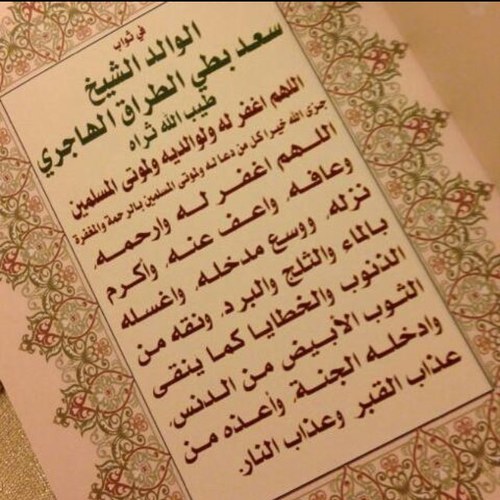 في ثواب
الوالد الشيخ
سعد بطي الطراق الهاجري
طيب الله ثراه
اللهم اغفر له ولوالديه ولموتى المسلمين
جزى الله خيرا كل من دعا له ولموتى المسلمين بالرحمة والمغفرة
اللهم اغفر له وارحمه،
وعافه، واعف عنه، وأكرم
نزله، ووسع مدخله، واغسله
بالماء والثلج والبرد، ونقه من
الذنوب والخطايا كما ينقى
الثوب الأبيض من الدنس،
وادخله الجنة، وأعذه من
عذاب القبر وعذاب النار.